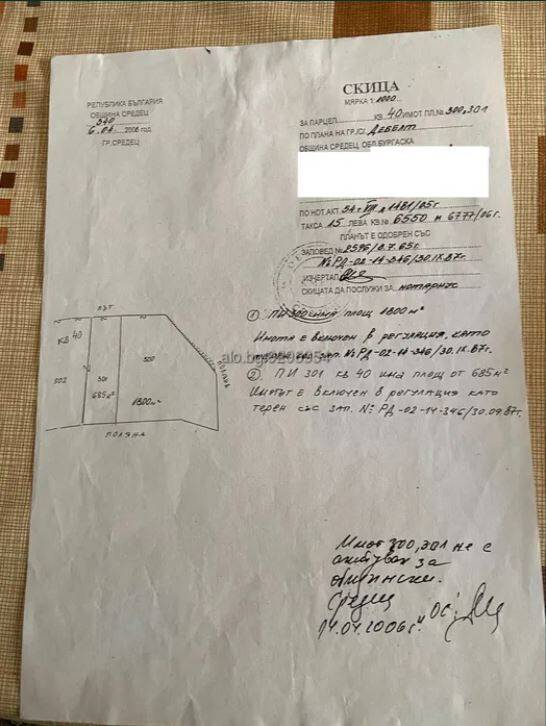 РЕПУБЛИКА БЪЛГАРИЯ
ОБЩИНА СРЕДЕЦ
340
6.04. 2006 год.
ГР.СРЕДЕЦ
СКИЦА
МЯРКА 1:1000
ЗА ПАРЦЕЛ КВ. 40 ИМОТ ПЛ.№ 300,301
ПО ПЛАНА НА ГР./С/. ДЕБЕЛТ
ОБЩИНА СРЕДЕЦ, ОБЛ.БУРГАСКА
ПО НОТ.АКТ. 54 т. VIII д. 1481/05г.
ТАКСА 15 ЛЕВА КВ.№ 6550 и 6777/06г.
ПЛАНЪТ Е ОДОБРЕН СЪС
ЗАПОВЕД № 2596/8.7.65г.
№ РД-02-14-346/30.IX.87г.
ИЗЧЕРТАЛ
СКИЦАТА ДА ПОСЛУЖИ ЗА нотариус
ПЪТ
КВ 40
302
301
685м²
300
1800м²
ПОЛЯНА
① ПИ 300 площ 1800 м²
Имота е включен в регулация, като
терен със зап. № РД-02-14-346/30.IX.87г.
② ПИ 301 кв 40 има площ от 685м²
Имотът е включен в регулация като
терен със зап. № РД-02-14-346/30.09.87г.
alo.bg
Имот 300,301 не е
актуван за
общински.
Средец
14.04.2006г.